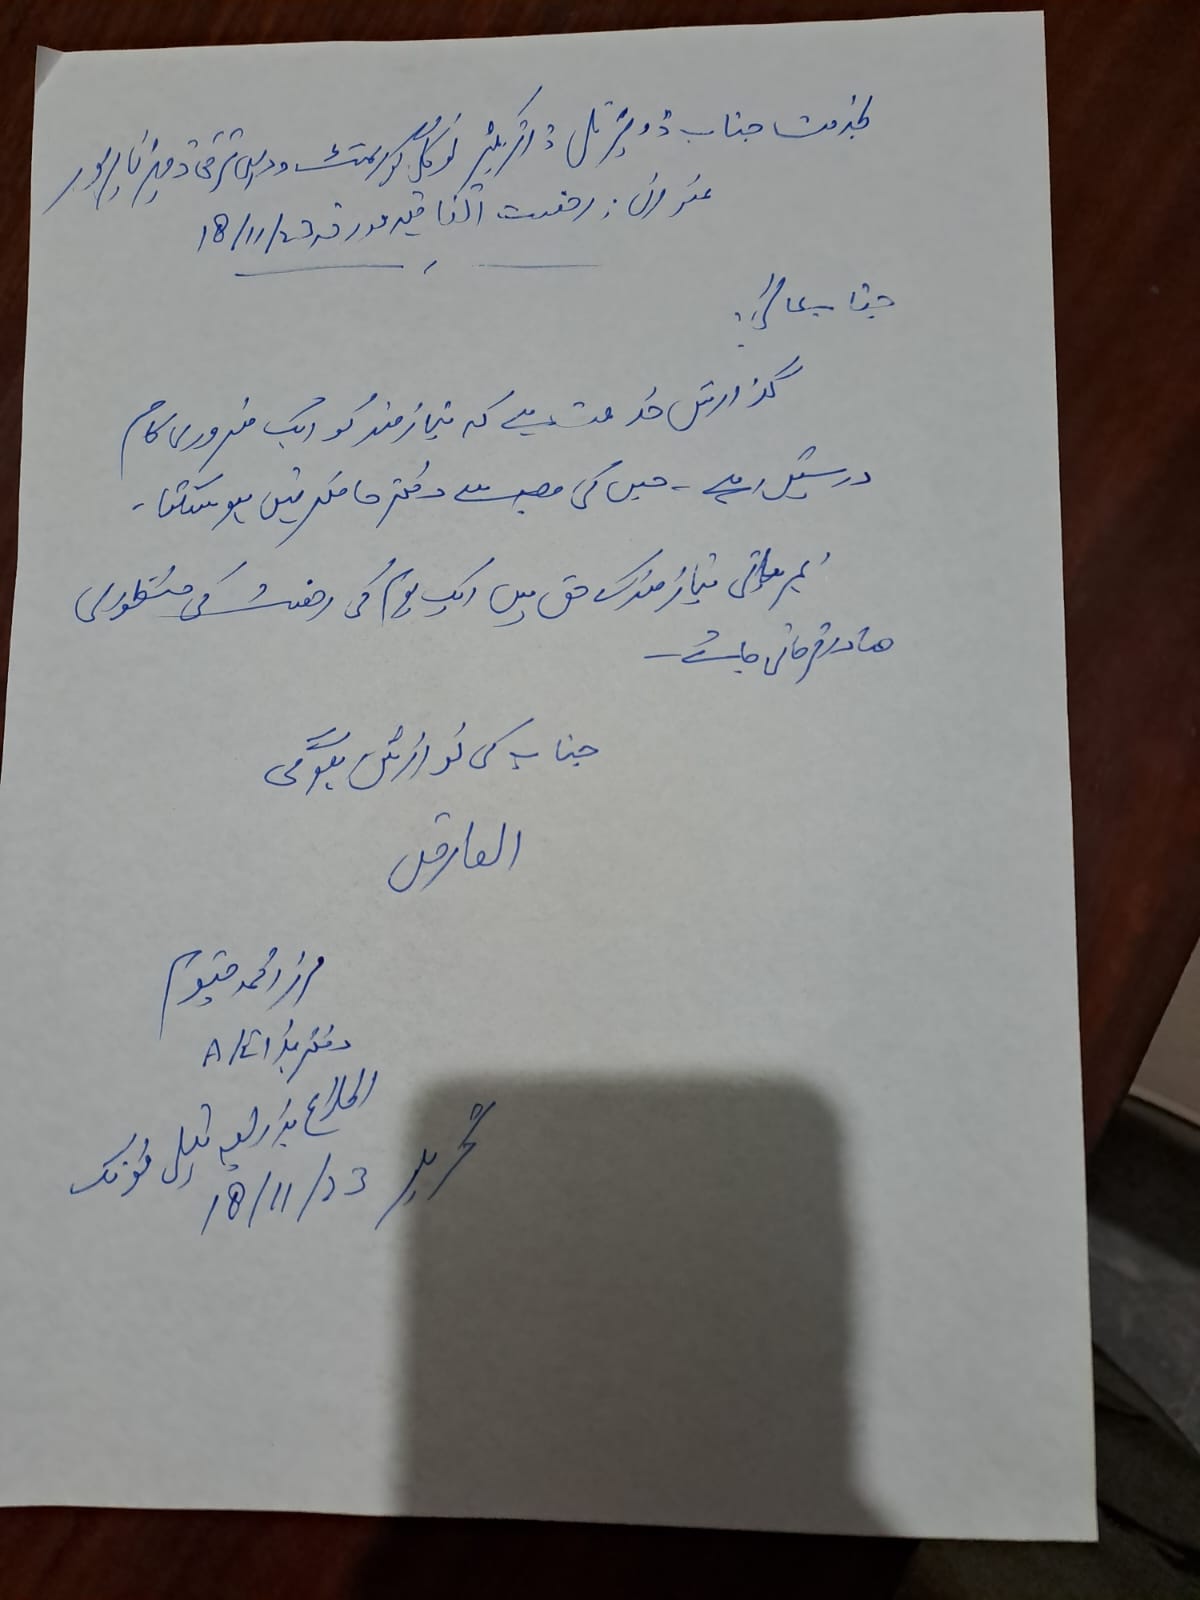 بخدمت جناب ڈویژنل ڈائریکٹر لوکل گورنمنٹ و دیہی ترقی ڈویژن میرپور
عنوان: رخصت اتفاقیہ مورخہ 18/11/23
جناب عالی!
گذارش خدمت ہے کہ نیازمند کو ایک ضروری کام
درپیش ہے۔ جس کی وجہ سے دفتر حاضر نہیں ہو سکتا۔
بمہربانی نیازمند کے حق میں ایک یوم کی رخصت کی منظوری
صادر فرمائی جائے۔
جناب کی نوازش ہوگی
العارض
مرزا محمد قیوم
دفتر ہذا
اطلاع بذریعہ ٹیلی فونک
تحریر 18/11/23